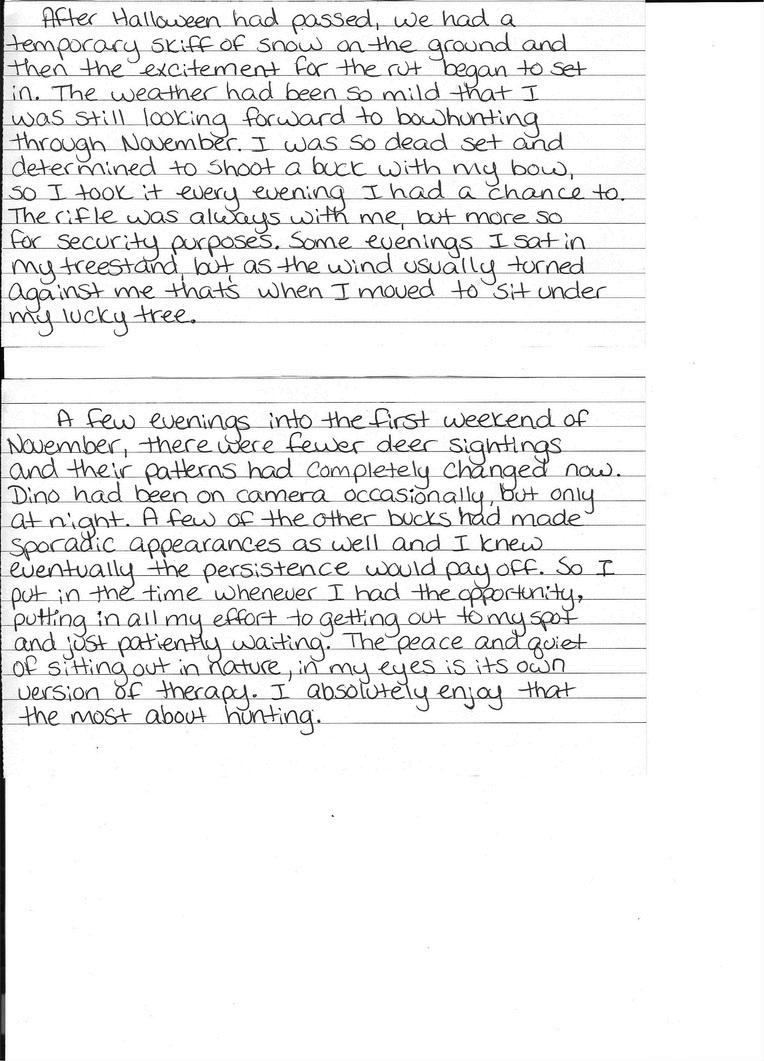 After Halloween had passed, we had a
temporary skiff of snow on the ground and
then the excitement for the rut began to set
in. The weather had been so mild that I
was still looking forward to bowhunting
through November. I was so dead set and
determined to shoot a buck with my bow,
so I took it every evening I had a chance to.
The rifle was always with me, but more so
for security purposes. Some evenings I sat in
my treestand, but as the wind usually turned
against me that's when I moved to sit under
my lucky tree.
A few evenings into the first weekend of
November, there were fewer deer sightings
and their patterns had completely changed now.
Dino had been on camera occasionally, but only
at night. A few of the other bucks had made
sporadic appearances as well and I knew
eventually the persistence would pay off. So I
put in the time whenever I had the opportunity,
putting in all my effort to getting out to my spot
and just patiently waiting. The peace and quiet
of sitting out in nature, in my eyes is its own
version of therapy. I absolutely enjoy that
the most about hunting.